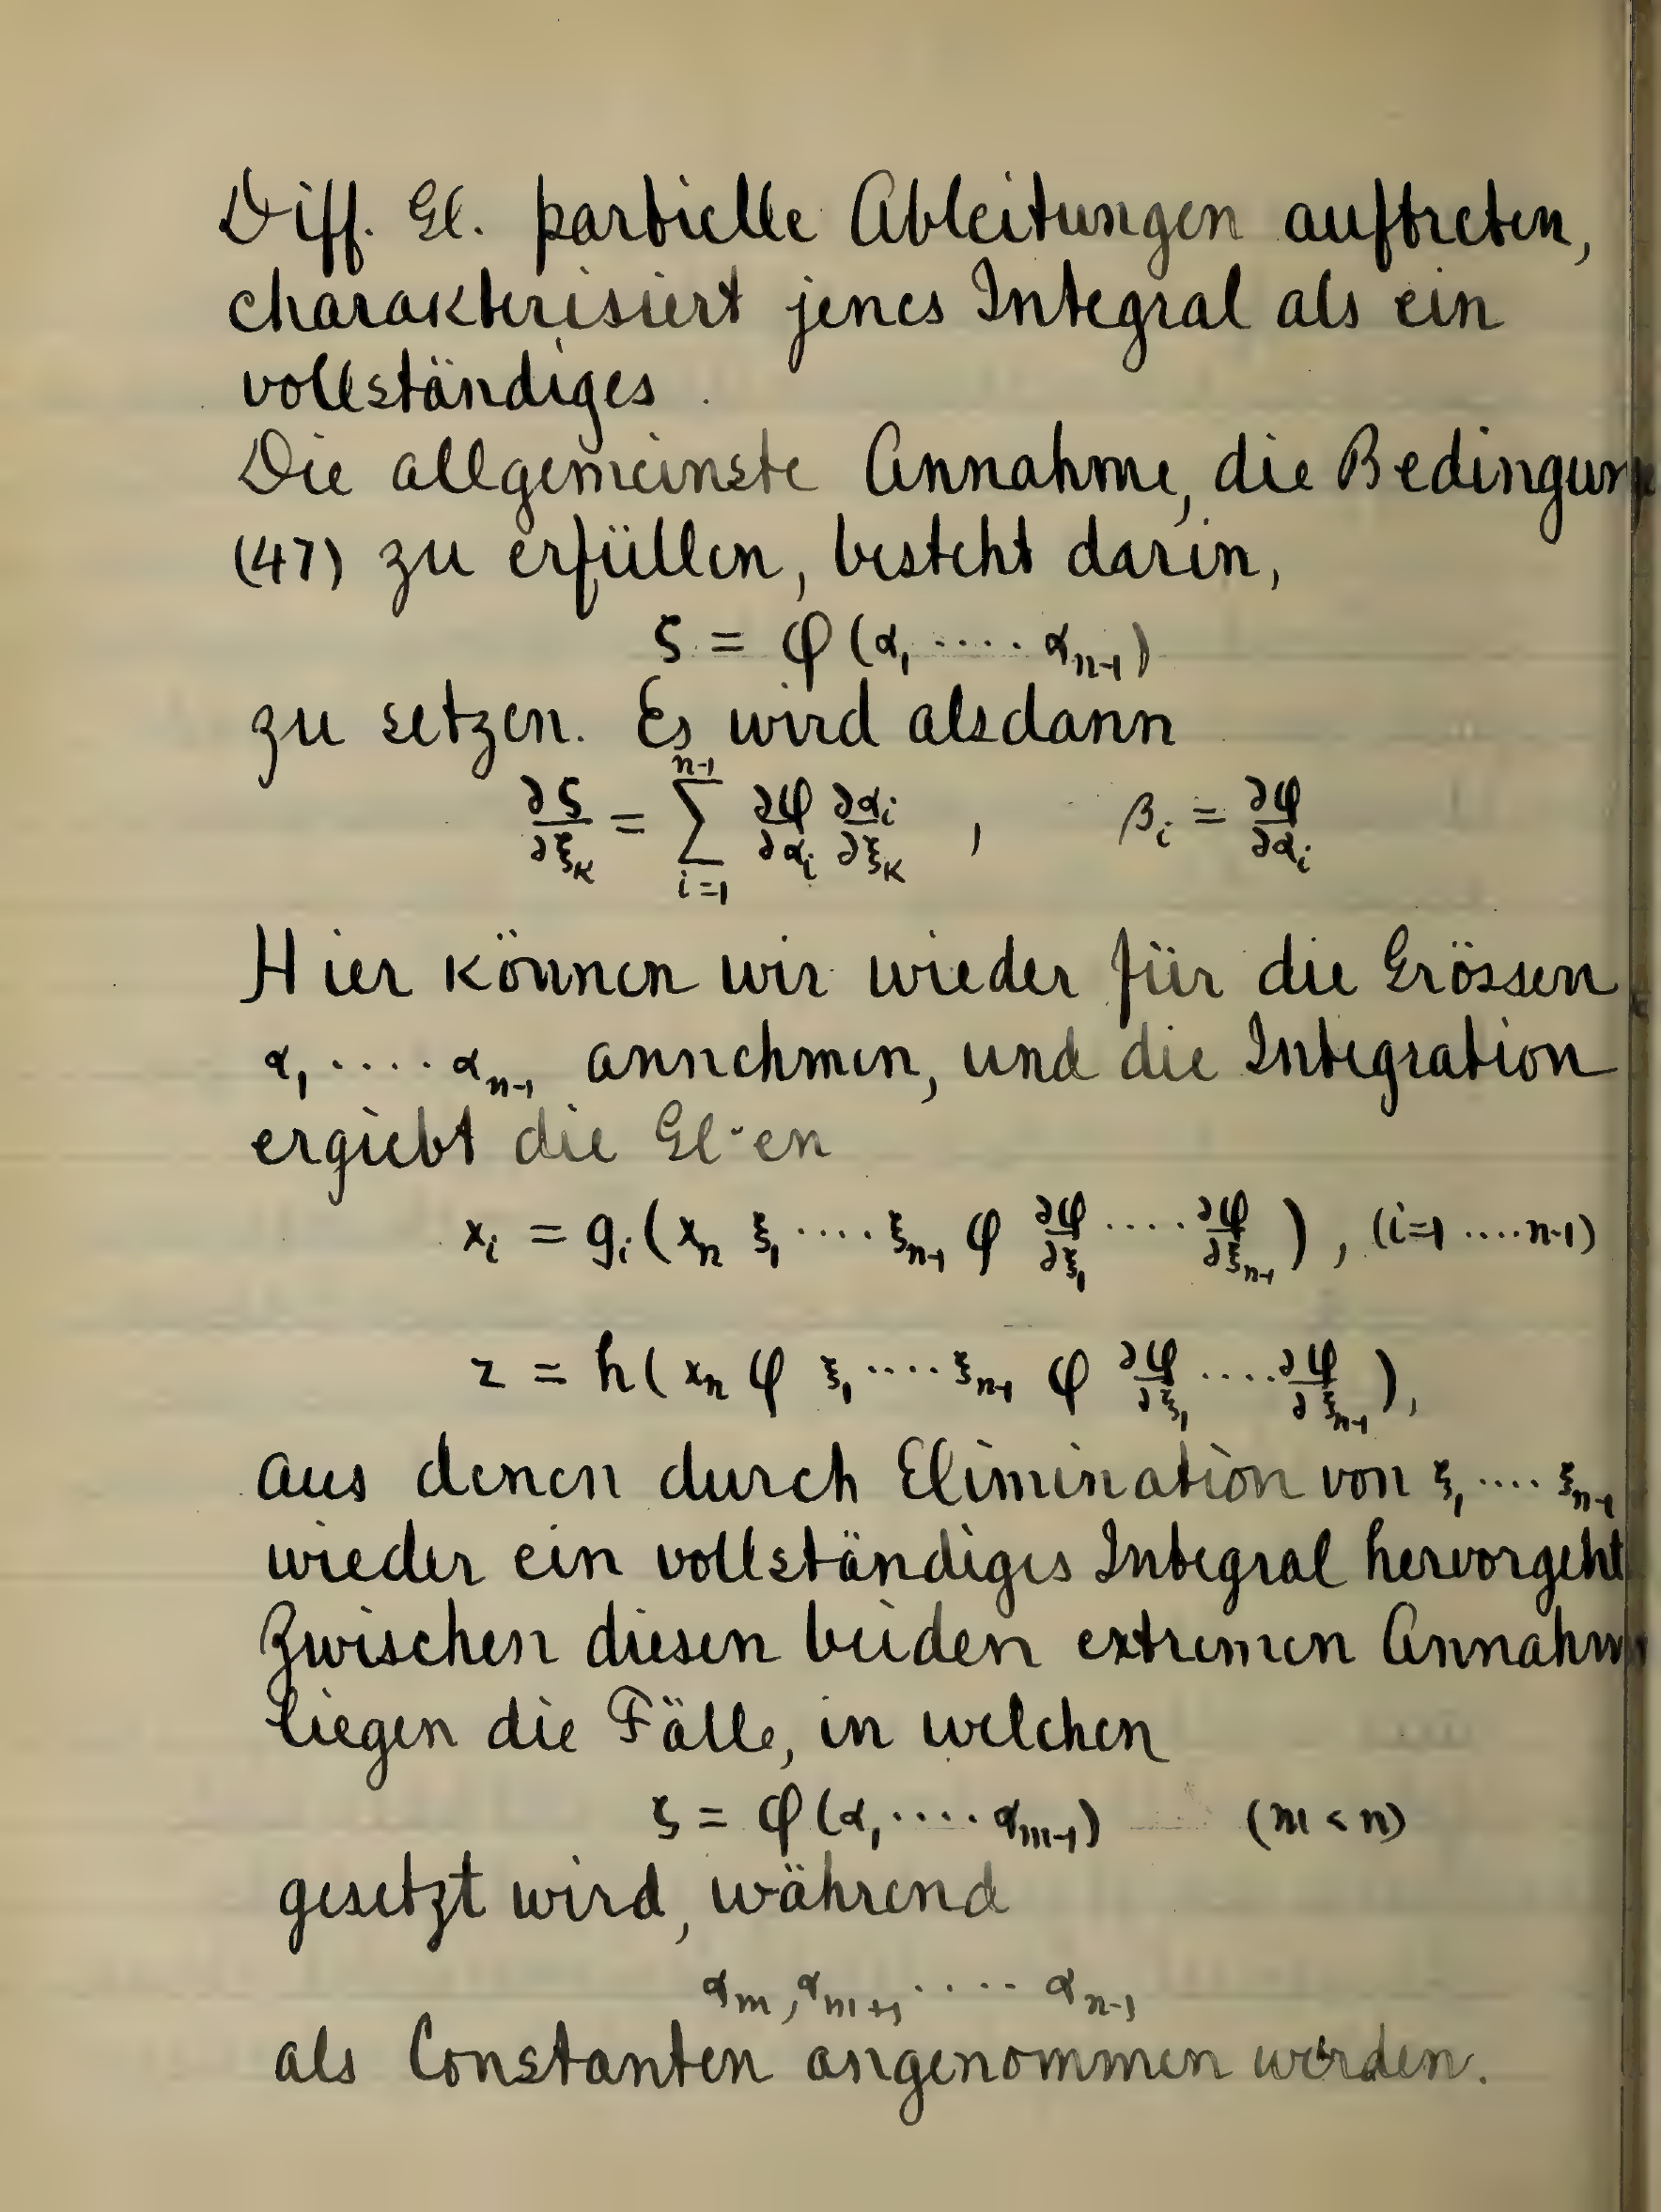 Diff. Gl. partielle Ableitungen auftreten,
charakterisiert jenes Integral als ein
vollständiges.
Die allgemeinste Annahme, die Bedingung
(47) zu erfüllen, besteht darin,
ζ = φ (α₁ ····· αₙ₋₁)
zu setzen. Es wird alsdann
∂ζ/∂ξ_κ = ∑_{i=1}^{n-1} ∂φ/∂α_i ∂α_i/∂ξ_κ , β_i = ∂φ/∂α_i
Hier können wir wieder für die Grössen
α₁ ····· αₙ₋₁ annehmen, und die Integration
ergiebt die Gl-en
x_i = g_i (xₙ ξ₁ ····· ξₙ₋₁ φ ∂φ/∂ξ₁ ····· ∂φ/∂ξₙ₋₁) , (i=1 ····· n-1)
z = h (xₙ φ ξ₁ ····· ξₙ₋₁ φ ∂φ/∂ξ₁ ····· ∂φ/∂ξₙ₋₁),
aus denen durch Elimination von ξ₁ ···· ξₙ₋₁
wieder ein vollständiges Integral hervorgeht
Zwischen diesen beiden extremen Annahm
liegen die Fälle, in welchen
ζ = φ (α₁ ····· α_{m-1}) (m < n)
gesetzt wird, während
α_m, α_{m+1} ····· α_{n-1}
als Constanten angenommen werden.